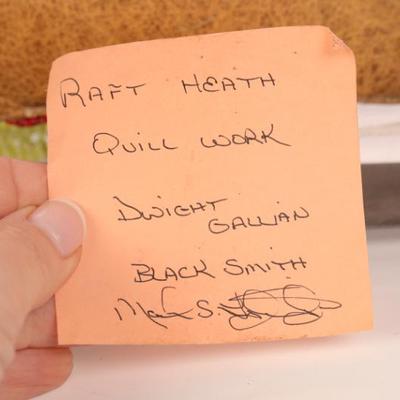 RAFT HEATH
QUILL WORK
DWIGHT
GALLIAN
BLACK SMITH